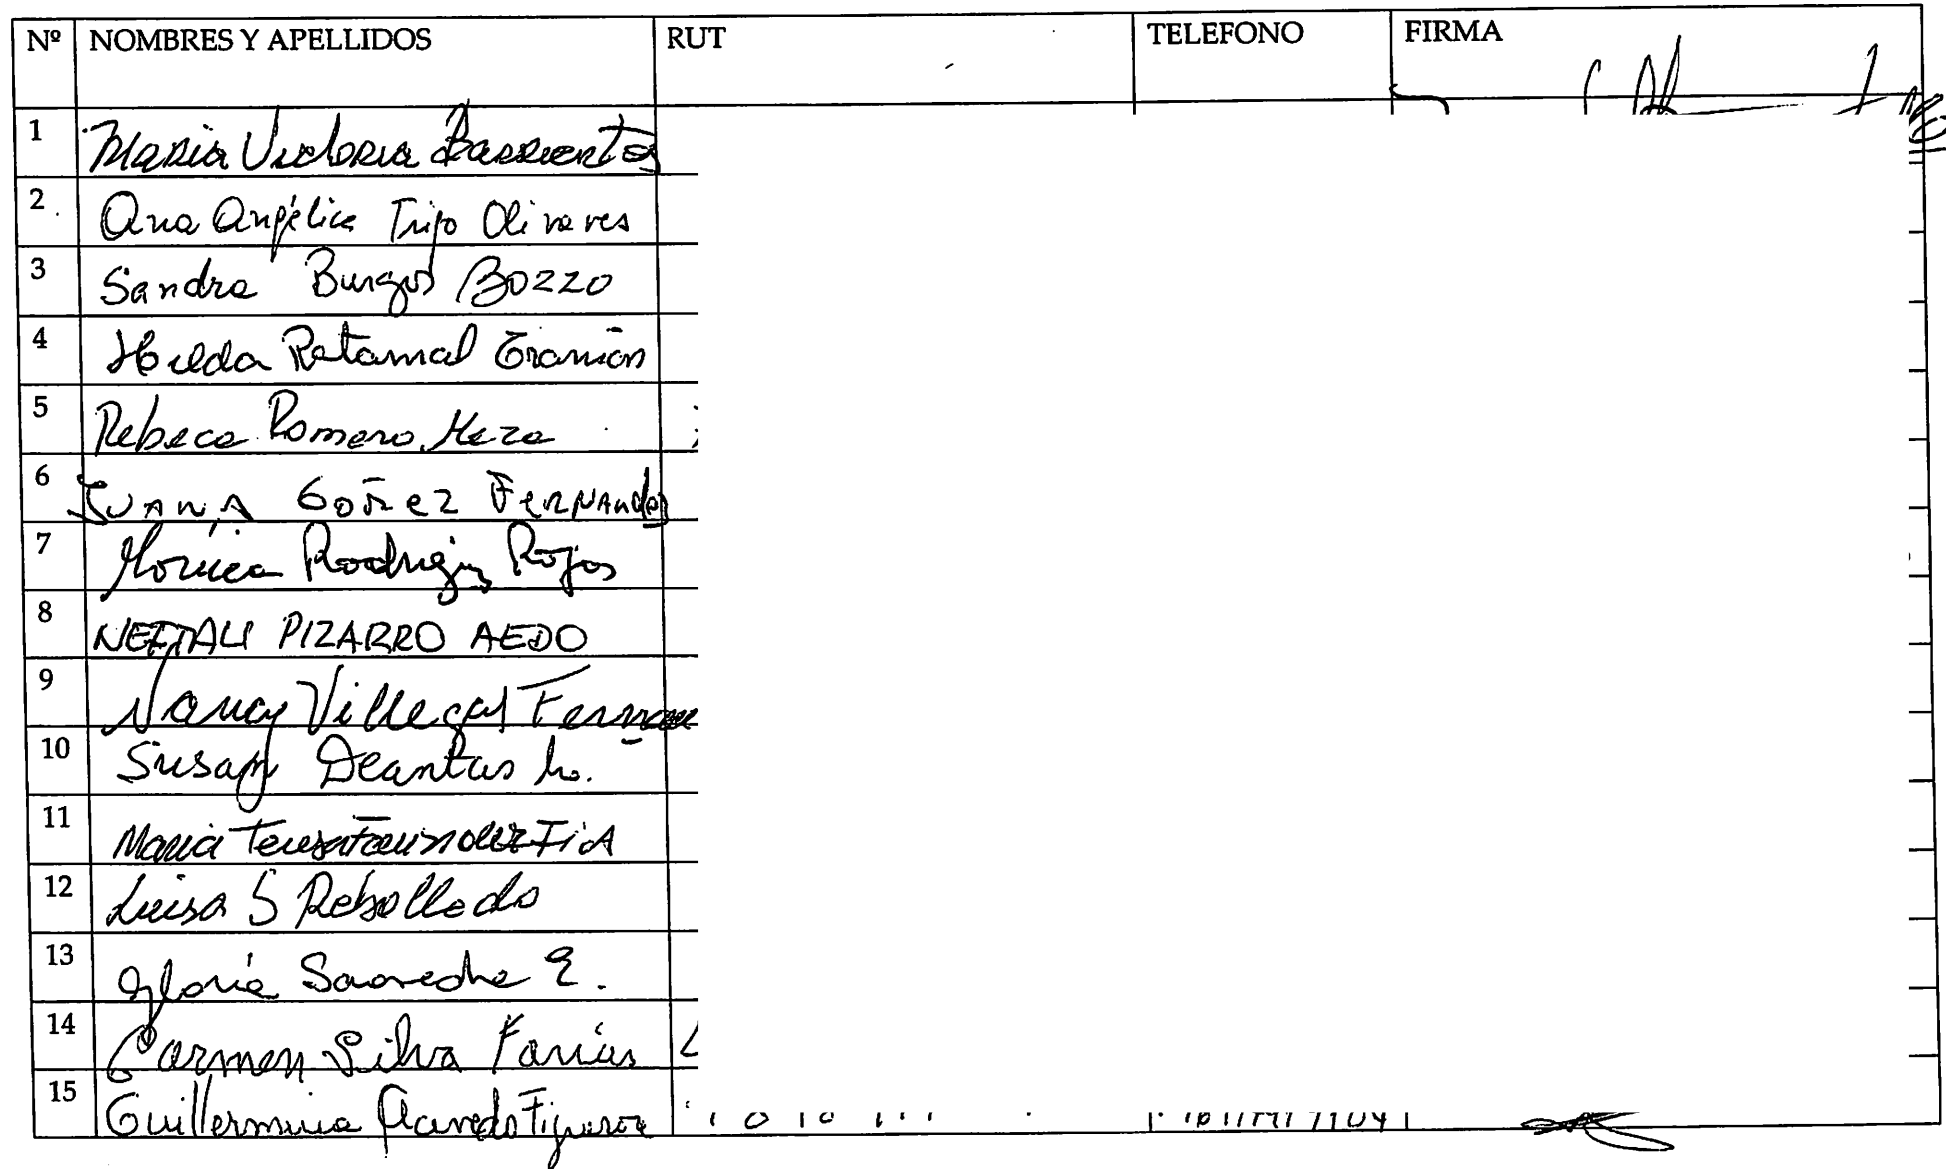 Nº NOMBRES Y APELLIDOS RUT TELEFONO FIRMA
1 Maria Victoria Barrientos
2 Ana Angélica Trijo Olivares
3 Sandra Burgos Bozzo
4 Hilda Retamal
5 Rebeca Romero Meza
6 Juana Goñez Fernandez
7 Monica Rodriguez Rojas
8 NEFTALI PIZARRO AEDO
9 Nancy Villegas Fernan
10 Susan
11 Maria Teresa
12 Luisa S Rebolledo
13 Gloria Saavedra E.
14 Carmen Silva Farias
15 Guillermina Figueroa